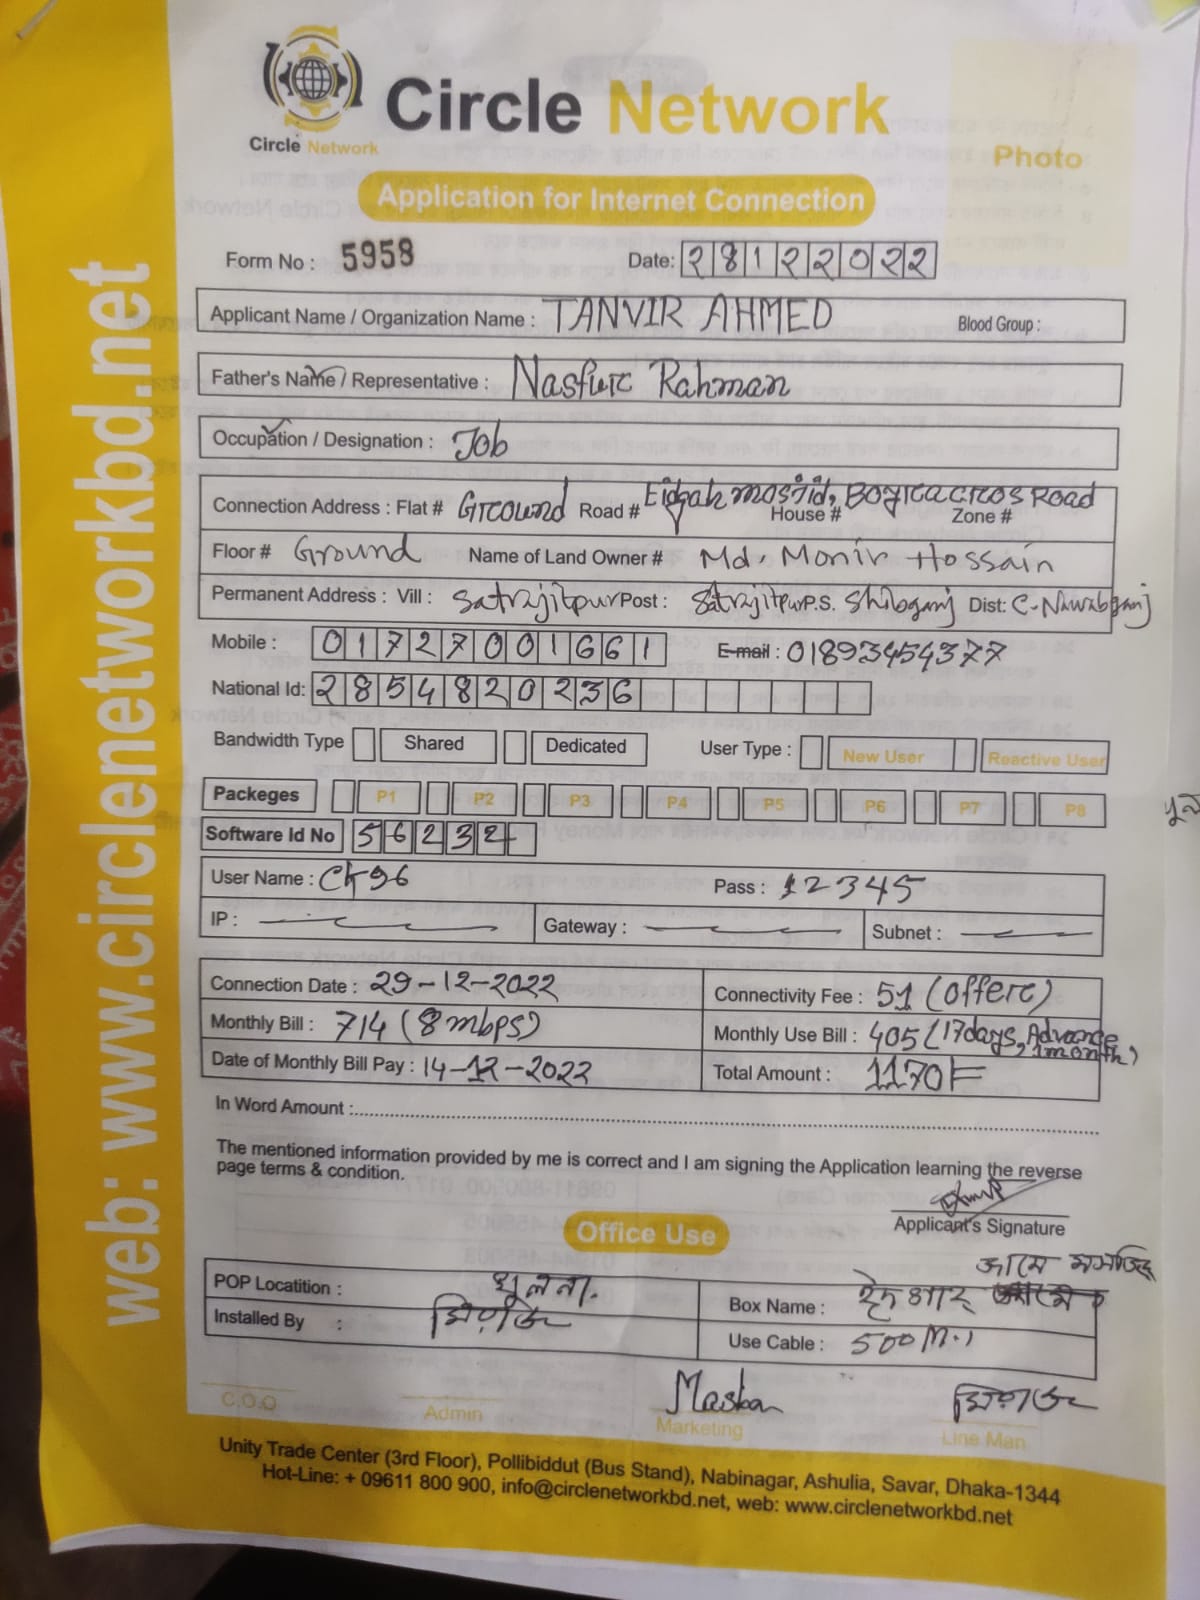 Circle Network
Circle Network
Photo
Application for Internet Connection
Form No : 5958
Date: 28122022
Applicant Name / Organization Name : TANVIR AHMED Blood Group :
Father's Name / Representative : Nasfur Rahman
Occupation / Designation : Job
Connection Address : Flat # Ground Road # Eidgah mosjid, Bogracros Road House # Zone #
Floor # Ground Name of Land Owner # Md. Monir Hossain
Permanent Address : Vill : Satrajitpur Post : Satrajitpur P.S. Shibganj Dist: C-Nawabganj
Mobile : 01727001661 E-mail : 01893454377
National Id: 2854820236
Bandwidth Type Shared Dedicated User Type : New User Reactive User
Packeges P1 P2 P3 P4 P5 P6 P7 P8
Software Id No 56232
User Name : Ck96 Pass : 12345
IP : Gateway : Subnet :
Connection Date : 29-12-2022 Connectivity Fee : 51 (Offer)
Monthly Bill : 714 (8 mbps) Monthly Use Bill : 405 (17days, Advance 1month)
Date of Monthly Bill Pay : 14-12-2022 Total Amount : 1170/=
In Word Amount :
The mentioned information provided by me is correct and I am signing the Application learning the reverse
page terms & condition.
Applicant's Signature
Office Use
POP Locatition : খুলনা.
Box Name : ঈদগাহ্ জামে মসজিদ
Installed By : মিরাজ
Use Cable : 500 M.
C.O.O Admin Marketing Line Man
মিরাজ
Unity Trade Center (3rd Floor), Pollibiddut (Bus Stand), Nabinagar, Ashulia, Savar, Dhaka-1344
Hot-Line: + 09611 800 900, info@circlenetworkbd.net, web: www.circlenetworkbd.net
web: www.circlenetworkbd.net